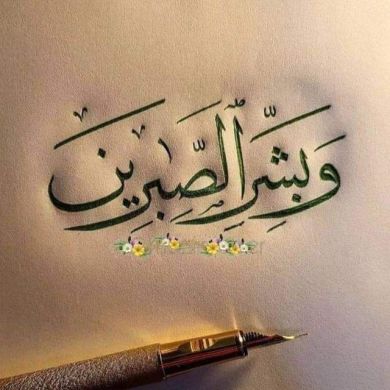 وَبَشِّرِ الصَّٰبِرِينَ